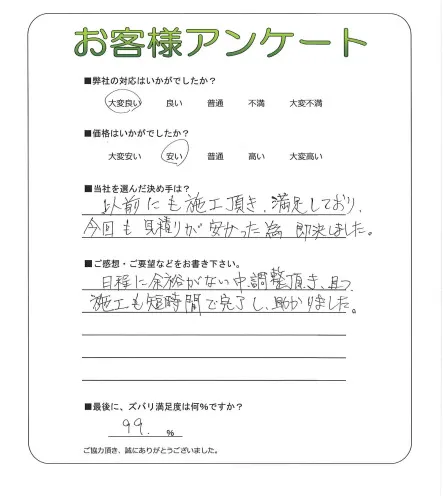 お客様アンケート
■弊社の対応はいかがでしたか?
大変良い 良い 普通 不満 大変不満
■価格はいかがでしたか?
大変安い 安い 普通 高い 大変高い
■当社を選んだ決め手は?
以前にも施工頂き、満足しており、
今回も見積りが安かった為 即決しました。
■ご感想・ご要望などをお書き下さい。
日程に余裕がない中、調整頂き、且つ
施工も短時間で完了し、助かりました。
■最後に、ズバリ満足度は何%ですか?
99. %
ご協力頂き、誠にありがとうございました。